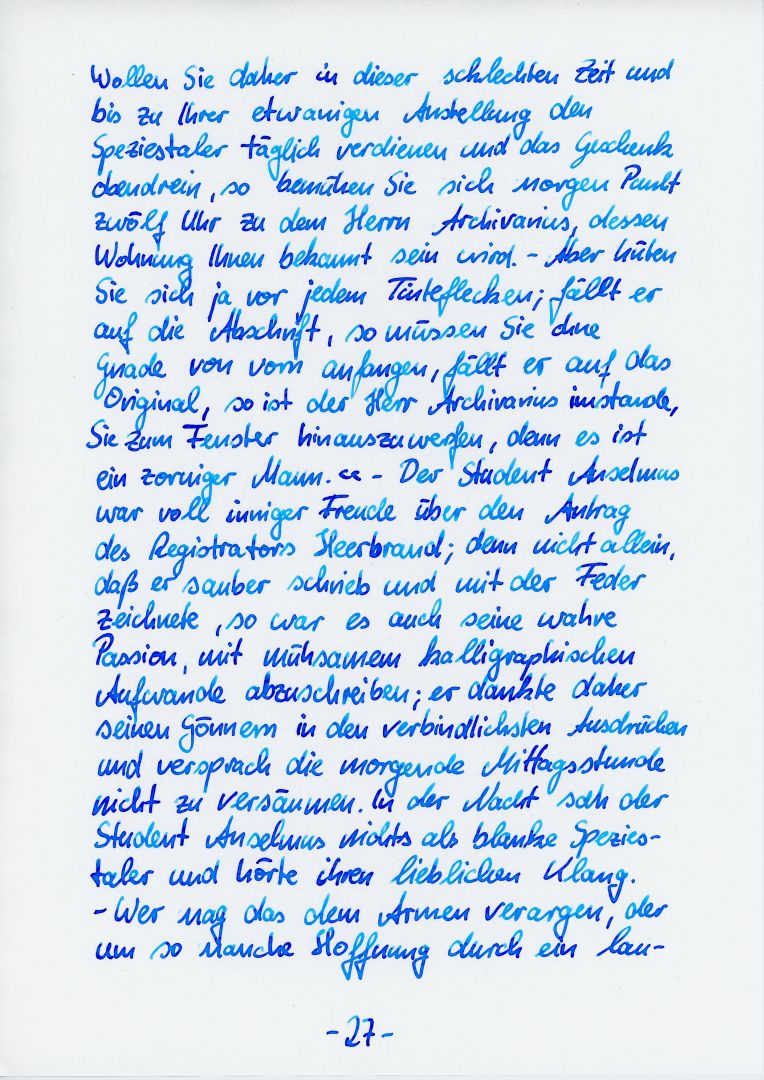 Wollen Sie daher in dieser schlechten Zeit und
bis zu Ihrer etwanigen Anstellung den
Speziestaler täglich verdienen und das Geschenk
obendrein, so bemühen Sie sich morgen Punkt
zwölf Uhr zu dem Herrn Archivarius, dessen
Wohnung Ihnen bekannt sein wird. - Aber hüten
Sie sich ja vor jedem Tinteflecken; fällt er
auf die Abschrift, so müssen Sie ohne
Gnade von vorn anfangen, fällt er auf das
Original, so ist der Herr Archivarius imstande,
Sie zum Fenster hinauszuwerfen, denn es ist
ein zorniger Mann.<< - Der Student Anselmus
war voll inniger Freude über den Antrag
des Registrators Heerbrand; denn nicht allein,
daß er sauber schrieb und mit der Feder
zeichnete, so war es auch seine wahre
Passion, mit mühsamem kalligraphischen
Aufwande abzuschreiben; er dankte daher
seinen Gönnern in den verbindlichsten Ausdrücken
und versprach die morgende Mittagsstunde
nicht zu versäumen. In der Nacht sah der
Student Anselmus nichts als blanke Spezies-
taler und hörte ihren lieblichen Klang.
- Wer mag das dem Armen verargen, der
um so manche Hoffnung durch ein lau-
- 27 -